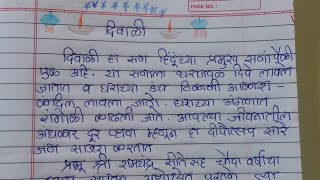 PAGE NO.:
दिवाळी
दिवाळी हा सण हिंदूंच्या प्रमुख सणांपैकी
एक आहे. या सणाला घराजवळ दिवे लावले
जातात व घराच्या उंच ठिकाणी आकाश-
कंदिल लावला जातो. घराच्या अंगणात
रांगोळी काढली जाते. आपल्या जीवनातील
अंधकार दूर व्हावा म्हणून हा दीपोत्सव सारे
जण साजरा करतात.
प्रभू श्री रामचंद्र सीतेसह चौदा वर्षाचा